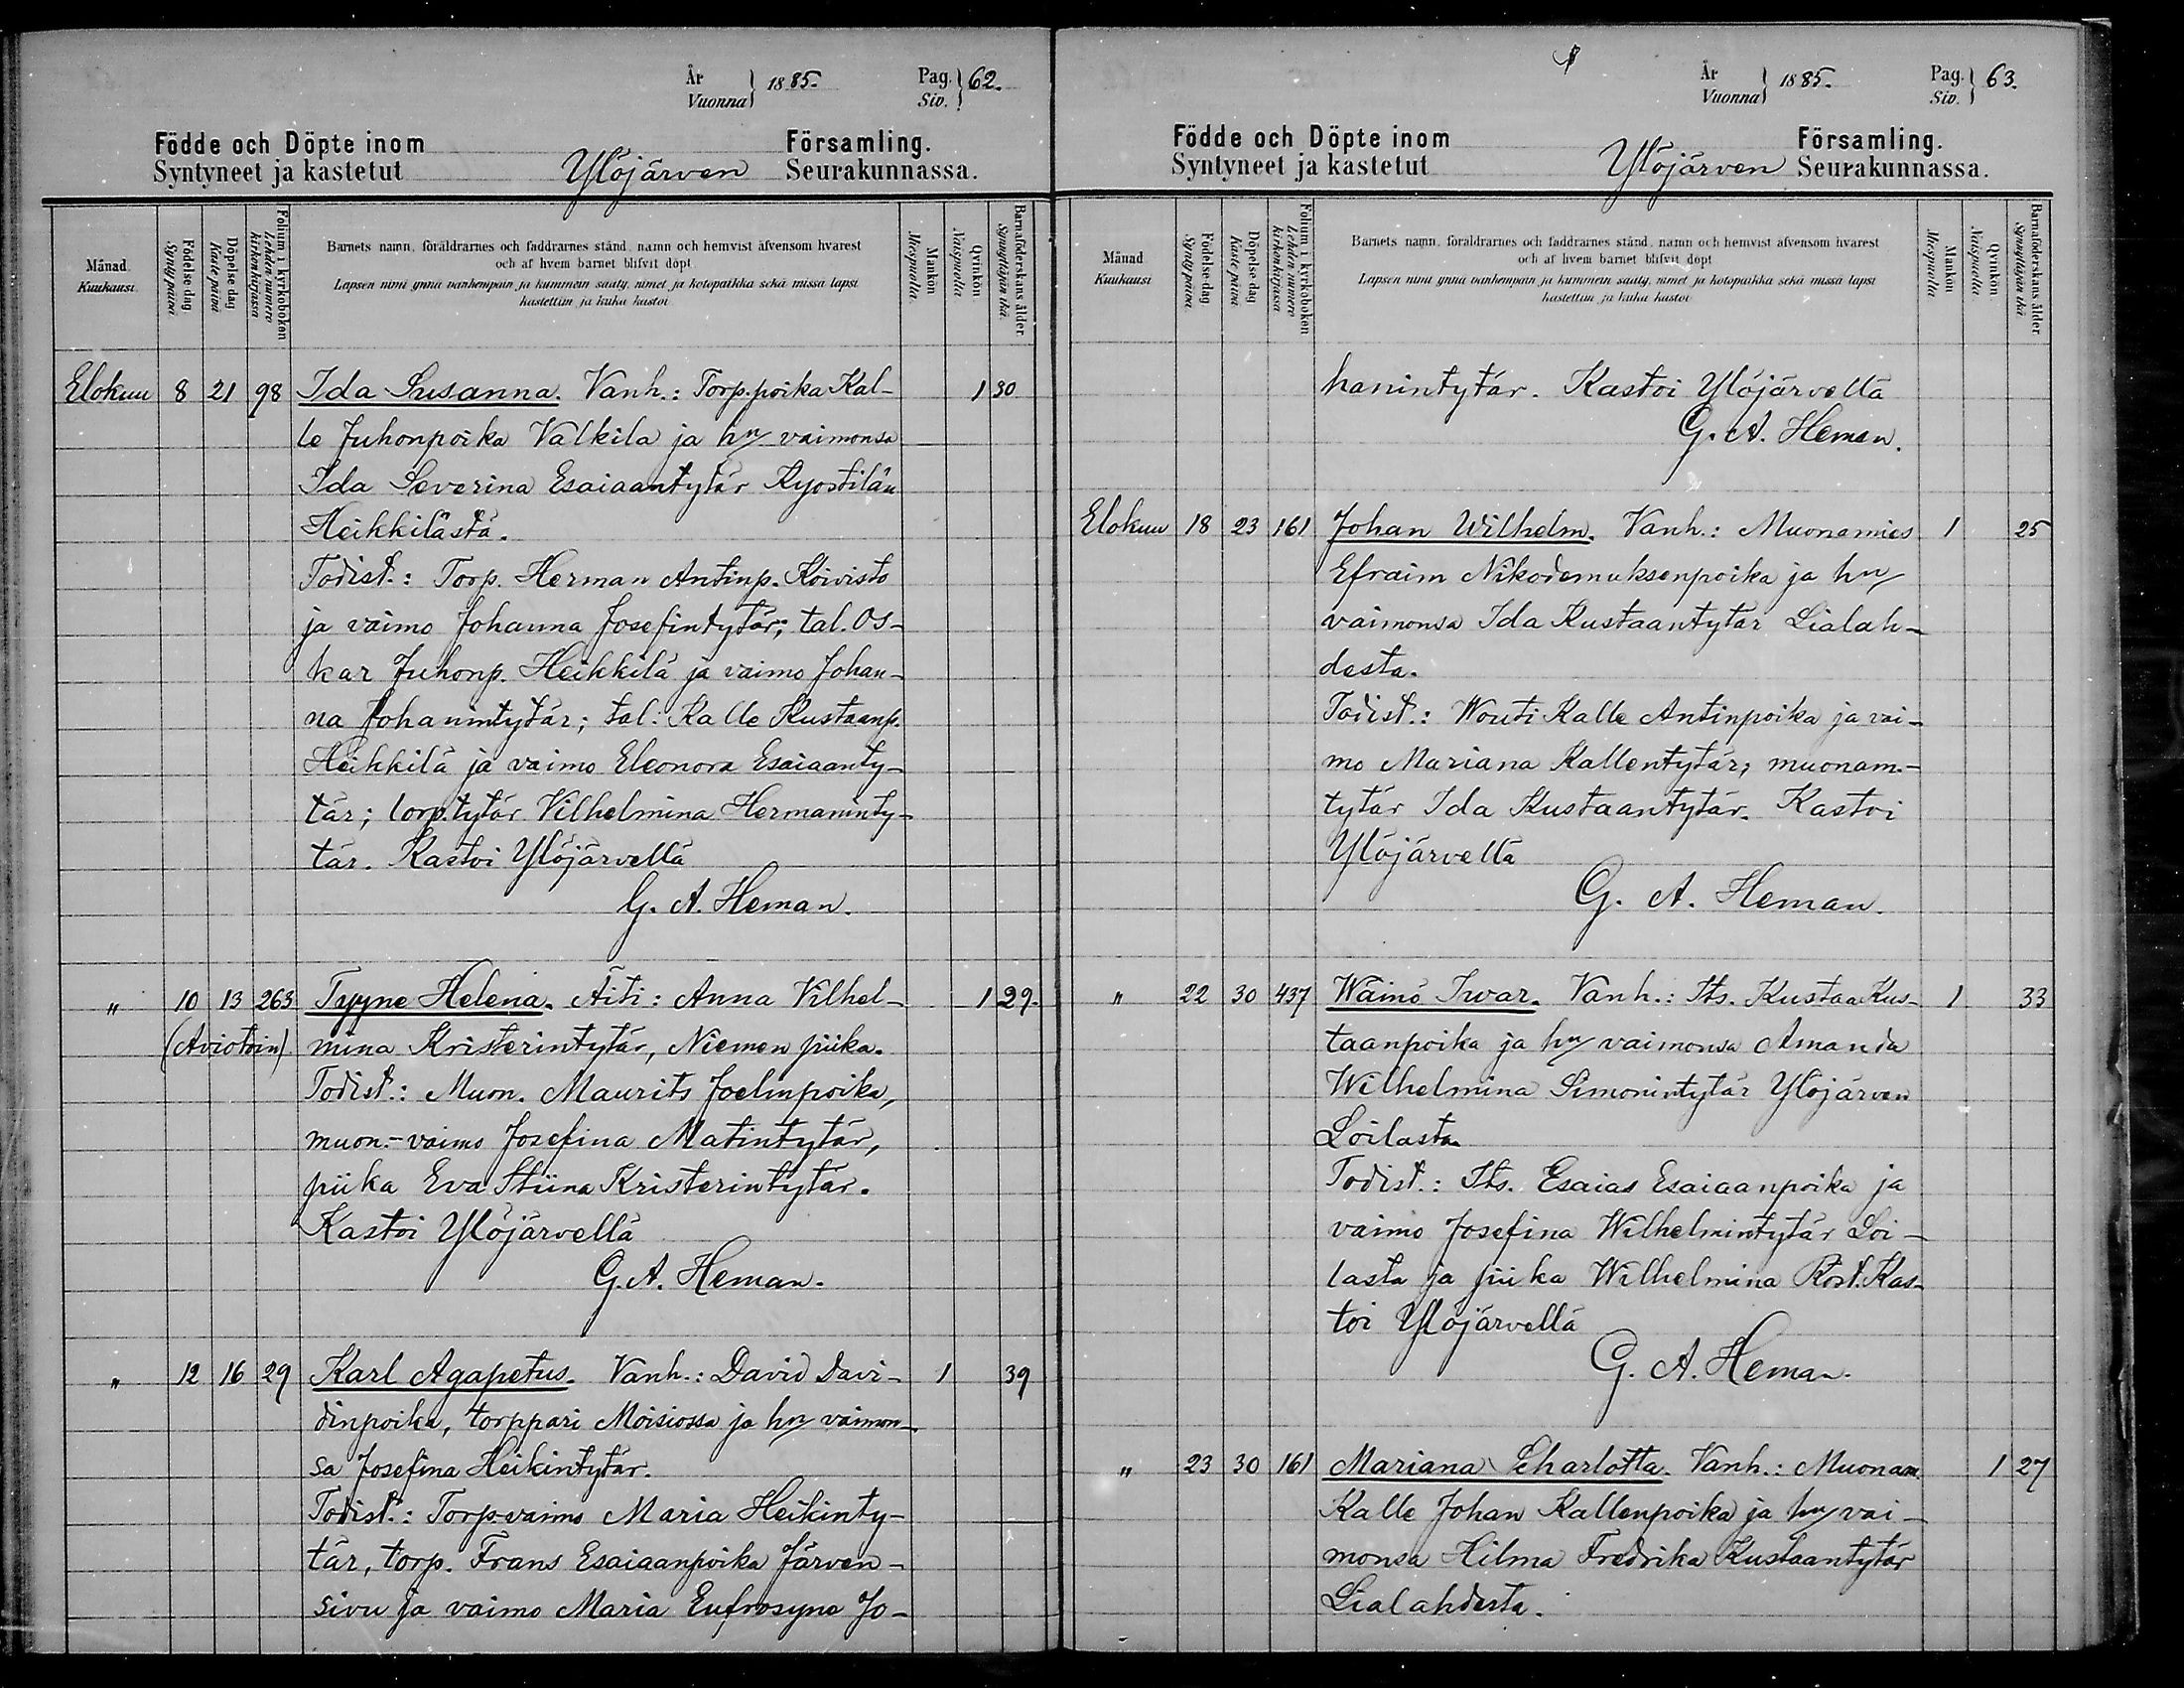 År
Vuonna } 1885.
Pag.
Siv. } 62.
Födde och Döpte inom Församling.
Syntyneet ja kastetut Ylöjärven Seurakunnassa.
Månad.
Kuukausi.
Födelse dag
Synty päivä
Döpelse dag
Kaste päivä
Folium i kyrkoboken
Lehden numero
kirkonkirjassa
Barnets namn, föräldrarnes och faddrarnes stånd, namn och hemvist äfvensom hvarest
och af hvem barnet blifvit döpt.
Lapsen nimi ynnä vanhempain ja kummein sääty, nimet ja kotopaikka sekä missä lapsi
kastettiin ja kuka kastoi.
Mankön
Miespuolia
Qvinkön
Naispuolia
Barnaföderskans ålder.
Synnyttäjän ikä.
Elokuu 8 21 98 Ida Susanna. Vanh.: Torp.poika Kal- 1 30
le Juhonpoika Valkila ja hn vaimonsa
Ida Severina Esaiaantytär Kyöstilän
Heikkilästä.
Todist.: Torp. Herman Antinp. Koivisto
ja vaimo Johanna Josefintytär; tal. Os-
kar Juhonp. Heikkilä ja vaimo Johan-
na Johanintytär; tal. Kalle Kustaanp.
Heikkilä ja vaimo Eleonora Esaiaanty-
tär; torp.tytär Vilhelmina Hermaninty-
tär. Kastoi Ylöjärvellä
G. A. Heman.
" 10 13 263 Tyyne Helena. Äiti: Anna Vilhel- 1 29.
(Aviotoin) mina Kristerintytär, Niemen piika.
Todist.: Muon. Maurits Joelinpoika,
muon.-vaimo Josefina Matintytär,
piika Eva Stiina Kristerintytär.
Kastoi Ylöjärvellä
G. A. Heman.
" 12 16 29 Karl Agapetus. Vanh.: David Davi- 1 39
dinpoika, torppari Moisiossa ja hn vaimon-
sa Josefina Heikintytär.
Todist.: Torp.vaimo Maria Heikinty-
tär, torp. Frans Esaiaanpoika Järven-
sivu ja vaimo Maria Eufrosyne Jo-
År
Vuonna } 1885.
Pag.
Siv. } 63.
Födde och Döpte inom Församling.
Syntyneet ja kastetut Ylöjärven Seurakunnassa.
Månad
Kuukausi
Födelse dag
Synty päivä
Döpelse dag
Kaste päivä
Folium i kyrkoboken
Lehden numero
kirkonkirjassa
Barnets namn, föräldrarnes och faddrarnes stånd, namn och hemvist äfvensom hvarest
och af hvem barnet blifvit döpt
Lapsen nimi ynnä vanhempain ja kummein sääty, nimet ja kotopaikka sekä missä lapsi
kastettiin ja kuka kastoi
Mankön
Miespuolia
Qvinkön
Naispuolia
Barnaföderskans ålder
Synnyttäjän ikä
hanintytär. Kastoi Ylöjärvellä
G. A. Heman.
Elokuu 18 23 161 Johan Wilhelm. Vanh.: Muonamies 1 25
Efraim Nikodemuksenpoika ja hn
vaimonsa Ida Kustaantytär Lialah-
desta.
Todist.: Wouti Kalle Antinpoika ja vai-
mo Mariana Kallentytär; muonam.-
tytär Ida Kustaantytär. Kastoi
Ylöjärvellä
G. A. Heman.
" 22 30 437 Wäinö Iwar. Vanh.: Its. Kustaa Kus- 1 33
taanpoika ja hn vaimonsa Amanda
Wilhelmina Simonintytär Ylöjärven
Loilasta
Todist.: Its. Esaias Esaiaanpoika ja
vaimo Josefina Wilhelmintytär Loi-
lasta ja piika Wilhelmina Rost. Kas-
toi Ylöjärvellä
G. A. Heman.
" 23 30 161 Mariana Charlotta. Vanh.: Muonam. 1 27
Kalle Johan Kallenpoika ja hn vai-
monsa Hilma Fredrika Kustaantytär
Lialahdesta.